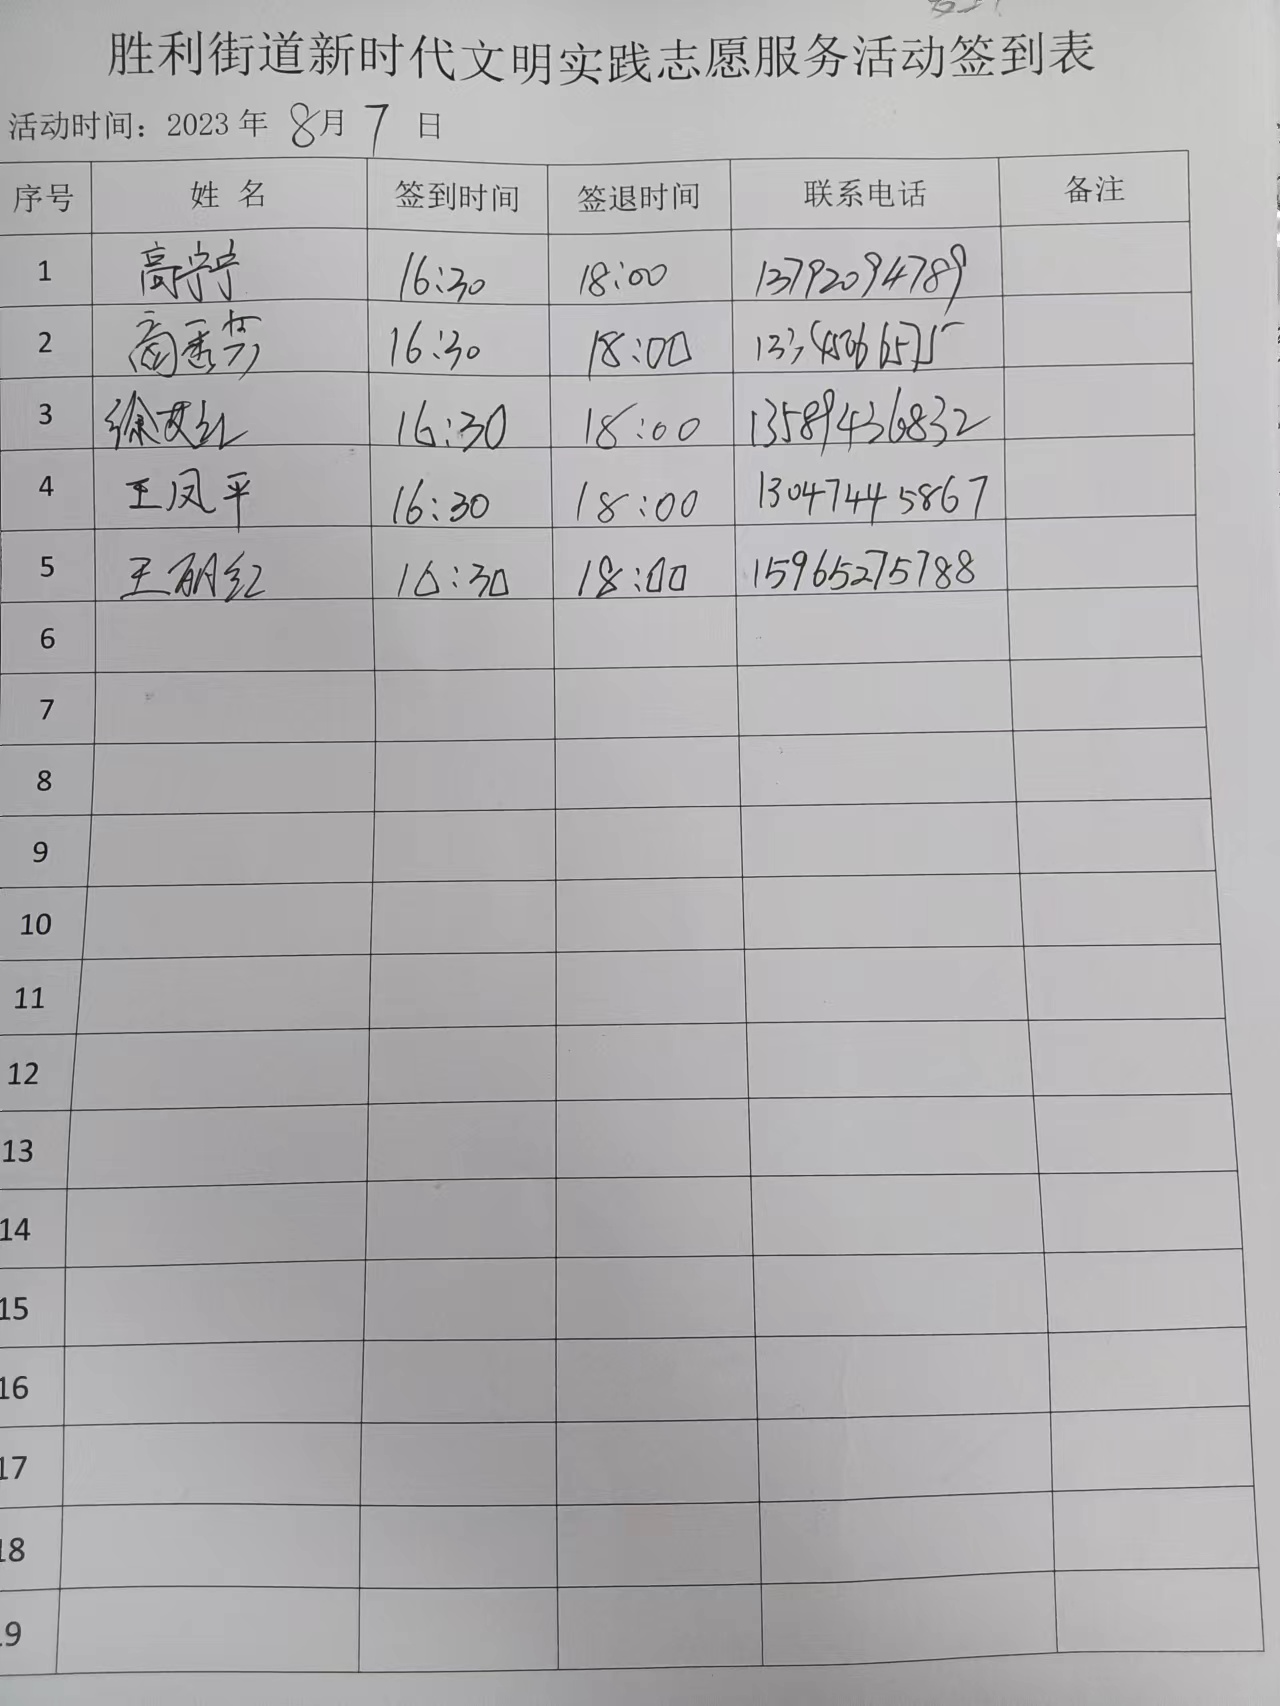 胜利街道新时代文明实践志愿服务活动签到表
活动时间：2023年 8月 7 日
序号 姓 名 签到时间 签退时间 联系电话 备注
1 高宁宁 16:30 18:00 13792094789
2 商秀芳 16:30 18:00
3 徐艾红 16:30 18:00 13589436832
4 王凤平 16:30 18:00 13047445867
5 王丽红 16:30 18:00 15965275788
6
7
8
9
10
11
12
13
14
15
16
17
18
19